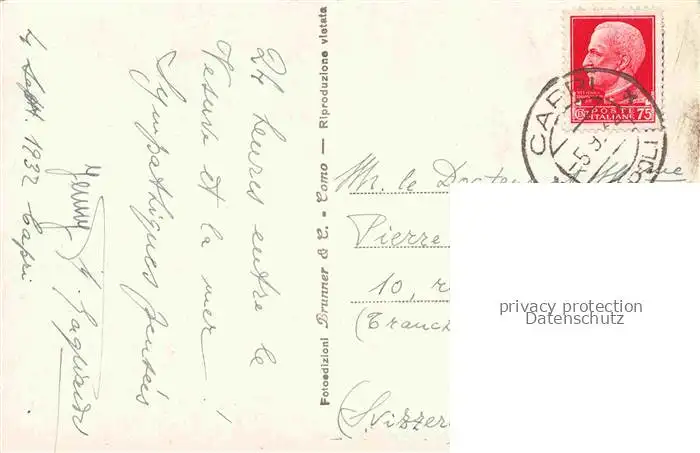 4 Sept. 1932 Capri
24 heures entre le
Vesuve et la mer!
Sympathiques pensées
Jenny
Fotoedizioni Brunner & C. - Como — Riproduzione vietata
POSTE
ITALIANE 75
CAPRI
Mr. le Docteur Mme
Pierre
10, r
(Svizzer
privacy protection
Datenschutz